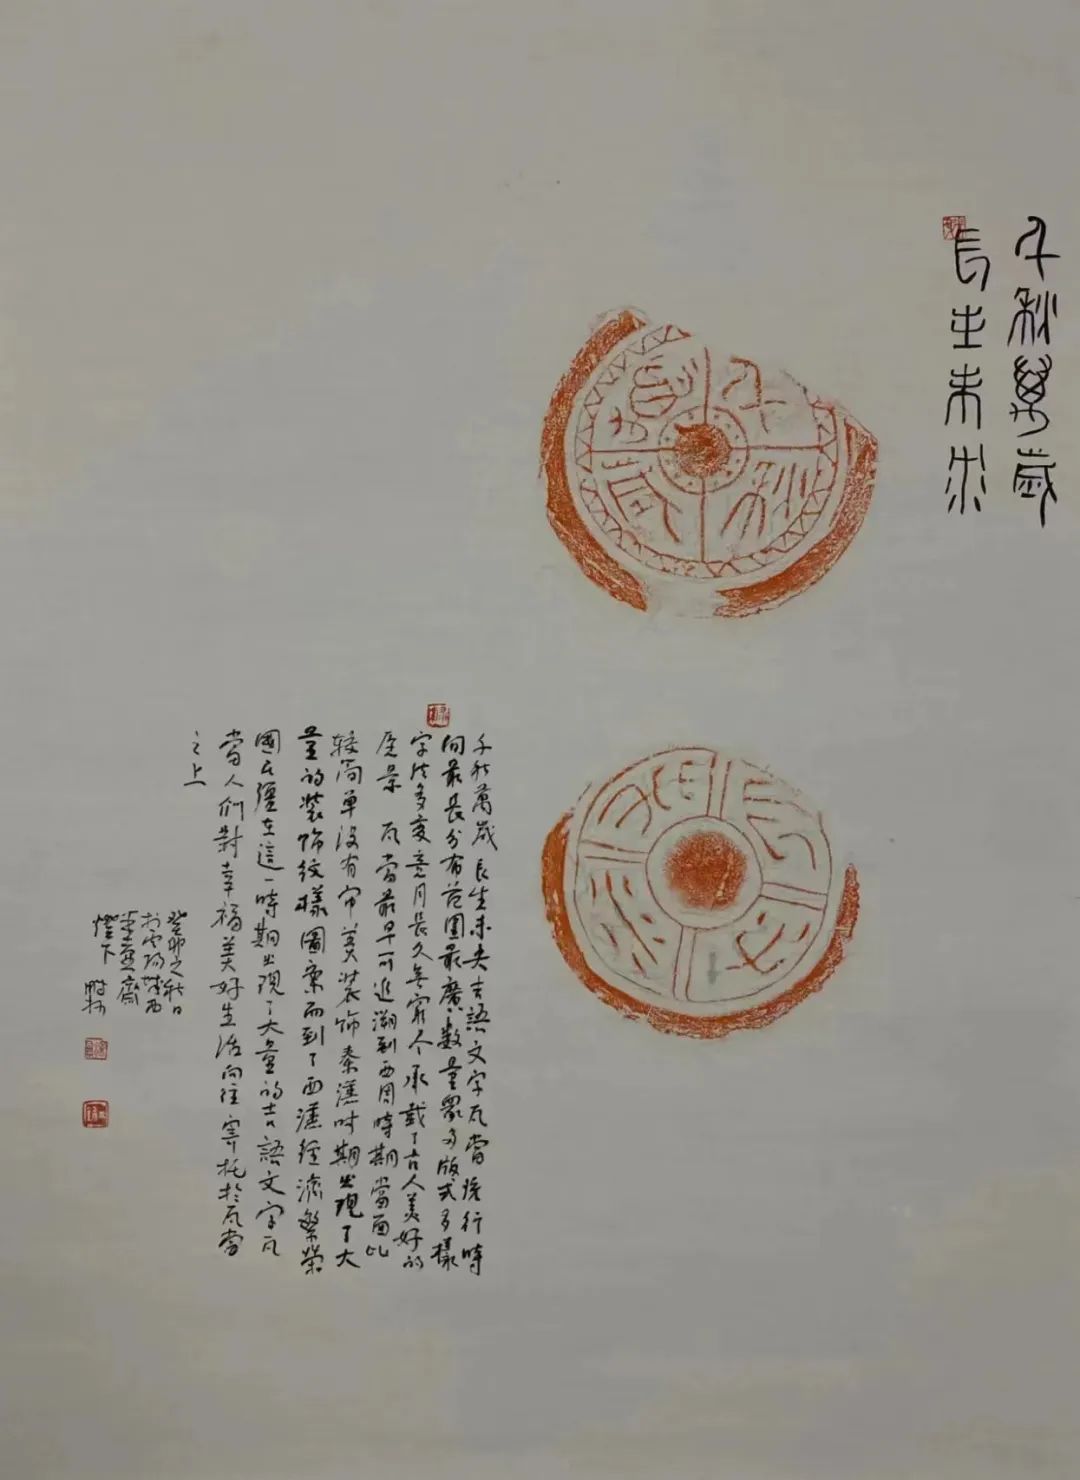 千秋萬歲
長生未央
千秋萬歲
長生未央
千秋萬歲長生未央吉語文字瓦當流行時
间最長分布范围最廣數量眾多版式多樣
字法多变意月長久無窮承載了古人美好的
愿景 瓦當最早可追溯到西周時期當面比
较简单没有审美装饰秦漢时期出現了大
量的装饰纹樣圖案而到了西漢經濟繁榮
國土疆在這一時期出現了大量的吉語文字瓦
當人们對幸福美好生活向往寄托於瓦當
之上
癸卯之秋日
於雲陽城西
齋
燈下